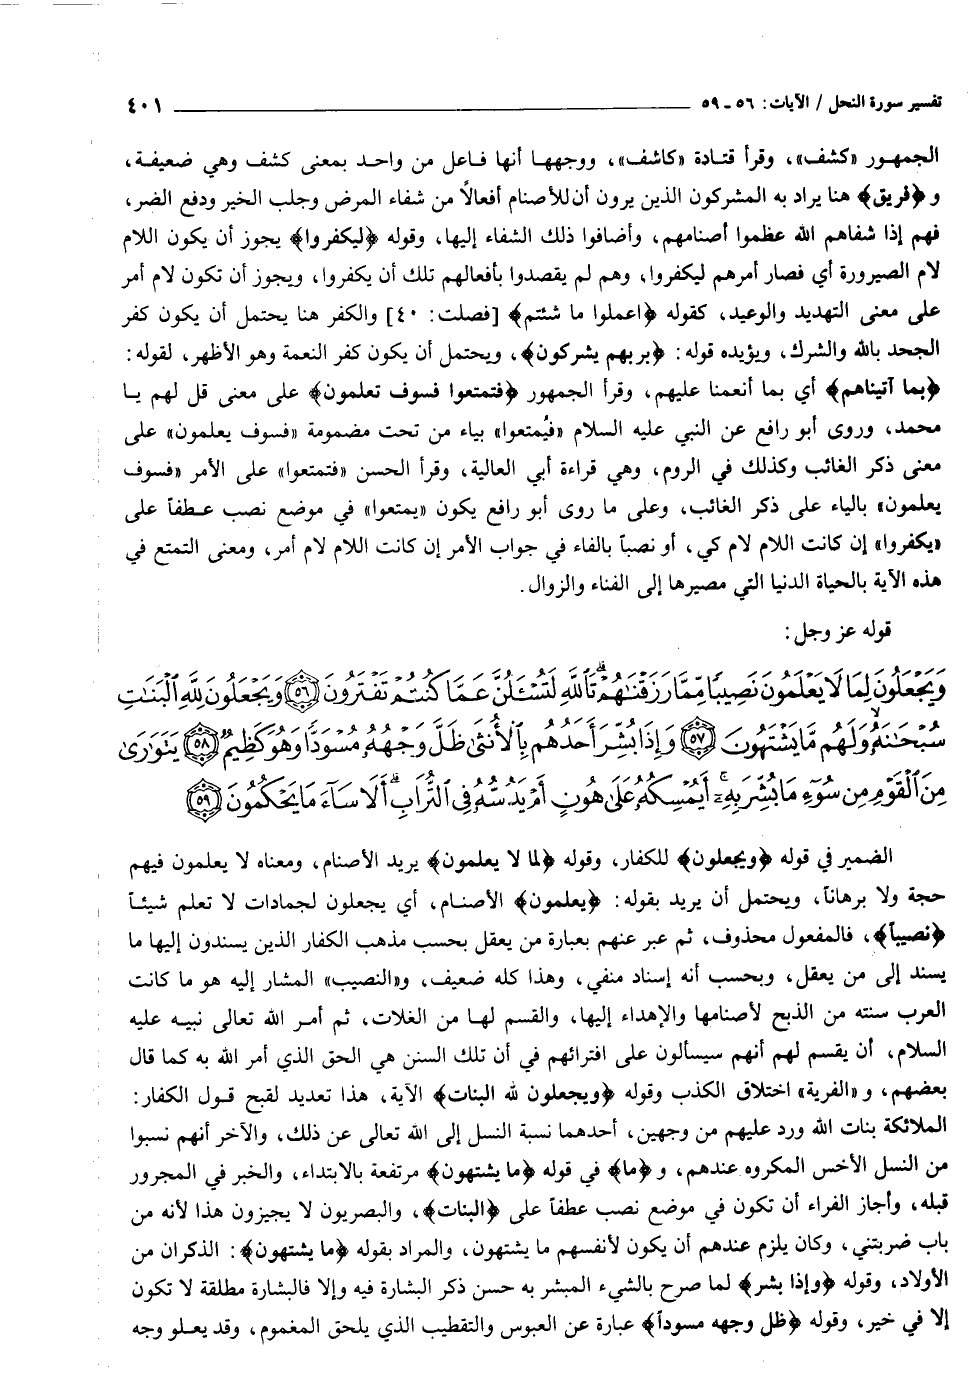 تفسير سورة النحل / الآيات: ٥٦ - ٥٩ ٤٠١
الجمهور «كشف»، وقرأ قتادة «كاشف»، ووجهها أنها فاعل من واحد بمعنى كشف وهي ضعيفة،
و﴿فريق﴾ هنا يراد به المشركون الذين يرون أن للأصنام أفعالاً من شفاء المرض وجلب الخير ودفع الضر،
فهم إذا شفاهم الله عظموا أصنامهم، وأضافوا ذلك الشفاء إليها، وقوله ﴿ليكفروا﴾ يجوز أن يكون اللام
لام الصيرورة أي فصار أمرهم ليكفروا، وهم لم يقصدوا بأفعالهم تلك أن يكفروا، ويجوز أن تكون لام أمر
على معنى التهديد والوعيد، كقوله ﴿اعملوا ما شئتم﴾ [فصلت: ٤٠] والكفر هنا يحتمل أن يكون كفر
الجحد بالله والشرك، ويؤيده قوله: ﴿بربهم يشركون﴾، ويحتمل أن يكون كفر النعمة وهو الأظهر، لقوله:
﴿بما آتيناهم﴾ أي بما أنعمنا عليهم، وقرأ الجمهور ﴿فتمتعوا فسوف تعلمون﴾ على معنى قل لهم يا
محمد، وروى أبو رافع عن النبي عليه السلام «فيُمتعوا» بياء من تحت مضمومة «فسوف يعلمون» على
معنى ذكر الغائب وكذلك في الروم، وهي قراءة أبي العالية، وقرأ الحسن «فتمتعوا» على الأمر «فسوف
يعلمون» بالياء على ذكر الغائب، وعلى ما روى أبو رافع يكون «يمتعوا» في موضع نصب عطفاً على
«يكفروا» إن كانت اللام لام كي، أو نصباً بالفاء في جواب الأمر إن كانت اللام لام أمر، ومعنى التمتع في
هذه الآية بالحياة الدنيا التي مصيرها إلى الفناء والزوال.
قوله عز وجل:
وَيَجْعَلُونَ لِمَا لَا يَعْلَمُونَ نَصِيبًا مِّمَّا رَزَقْنَٰهُمْ ۗ تَٱللَّهِ لَتُسْـَٔلُنَّ عَمَّا كُنتُمْ تَفْتَرُونَ ٥٦ وَيَجْعَلُونَ لِلَّهِ ٱلْبَنَٰتِ
سُبْحَٰنَهُۥ ۙ وَلَهُم مَّا يَشْتَهُونَ ٥٧ وَإِذَا بُشِّرَ أَحَدُهُم بِٱلْأُنثَىٰ ظَلَّ وَجْهُهُۥ مُسْوَدًّا وَهُوَ كَظِيمٌ ٥٨ يَتَوَٰرَىٰ
مِنَ ٱلْقَوْمِ مِن سُوٓءِ مَا بُشِّرَ بِهِۦٓ ۚ أَيُمْسِكُهُۥ عَلَىٰ هُونٍ أَمْ يَدُسُّهُۥ فِى ٱلتُّرَابِ ۗ أَلَا سَآءَ مَا يَحْكُمُونَ ٥٩
الضمير في قوله ﴿ويجعلون﴾ للكفار، وقوله ﴿لما لا يعلمون﴾ يريد الأصنام، ومعناه لا يعلمون فيهم
حجة ولا برهاناً، ويحتمل أن يريد بقوله: ﴿يعلمون﴾ الأصنام، أي يجعلون لجمادات لا تعلم شيئاً
﴿نصيباً﴾، فالمفعول محذوف، ثم عبر عنهم بعبارة من يعقل بحسب مذهب الكفار الذين يسندون إليها ما
يسند إلى من يعقل، وبحسب أنه إسناد منفي، وهذا كله ضعيف، و«النصيب» المشار إليه هو ما كانت
العرب سنته من الذبح لأصنامها والإهداء إليها، والقسم لها من الغلات، ثم أمر الله تعالى نبيه عليه
السلام، أن يقسم لهم أنهم سيسألون على افترائهم في أن تلك السنن هي الحق الذي أمر الله به كما قال
بعضهم، و «الفرية» اختلاق الكذب وقوله ﴿ويجعلون لله البنات﴾ الآية، هذا تعديد لقبح قول الكفار:
الملائكة بنات الله ورد عليهم من وجهين، أحدهما نسبة النسل إلى الله تعالى عن ذلك، والآخر أنهم نسبوا
من النسل الأخس المكروه عندهم، و﴿ما﴾ في قوله ﴿ما يشتهون﴾ مرتفعة بالابتداء، والخبر في المجرور
قبله، وأجاز الفراء أن تكون في موضع نصب عطفاً على ﴿البنات﴾، والبصريون لا يجيزون هذا لأنه من
باب ضربتني، وكان يلزم عندهم أن يكون لأنفسهم ما يشتهون، والمراد بقوله ﴿ما يشتهون﴾: الذكران من
الأولاد، وقوله ﴿وإذا بشر﴾ لما صرح بالشيء المبشر به حسن ذكر البشارة فيه وإلا فالبشارة مطلقة لا تكون
إلا في خير، وقوله ﴿ظل وجهه مسوداً﴾ عبارة عن العبوس والتقطيب الذي يلحق المغموم، وقد يعلو وجه